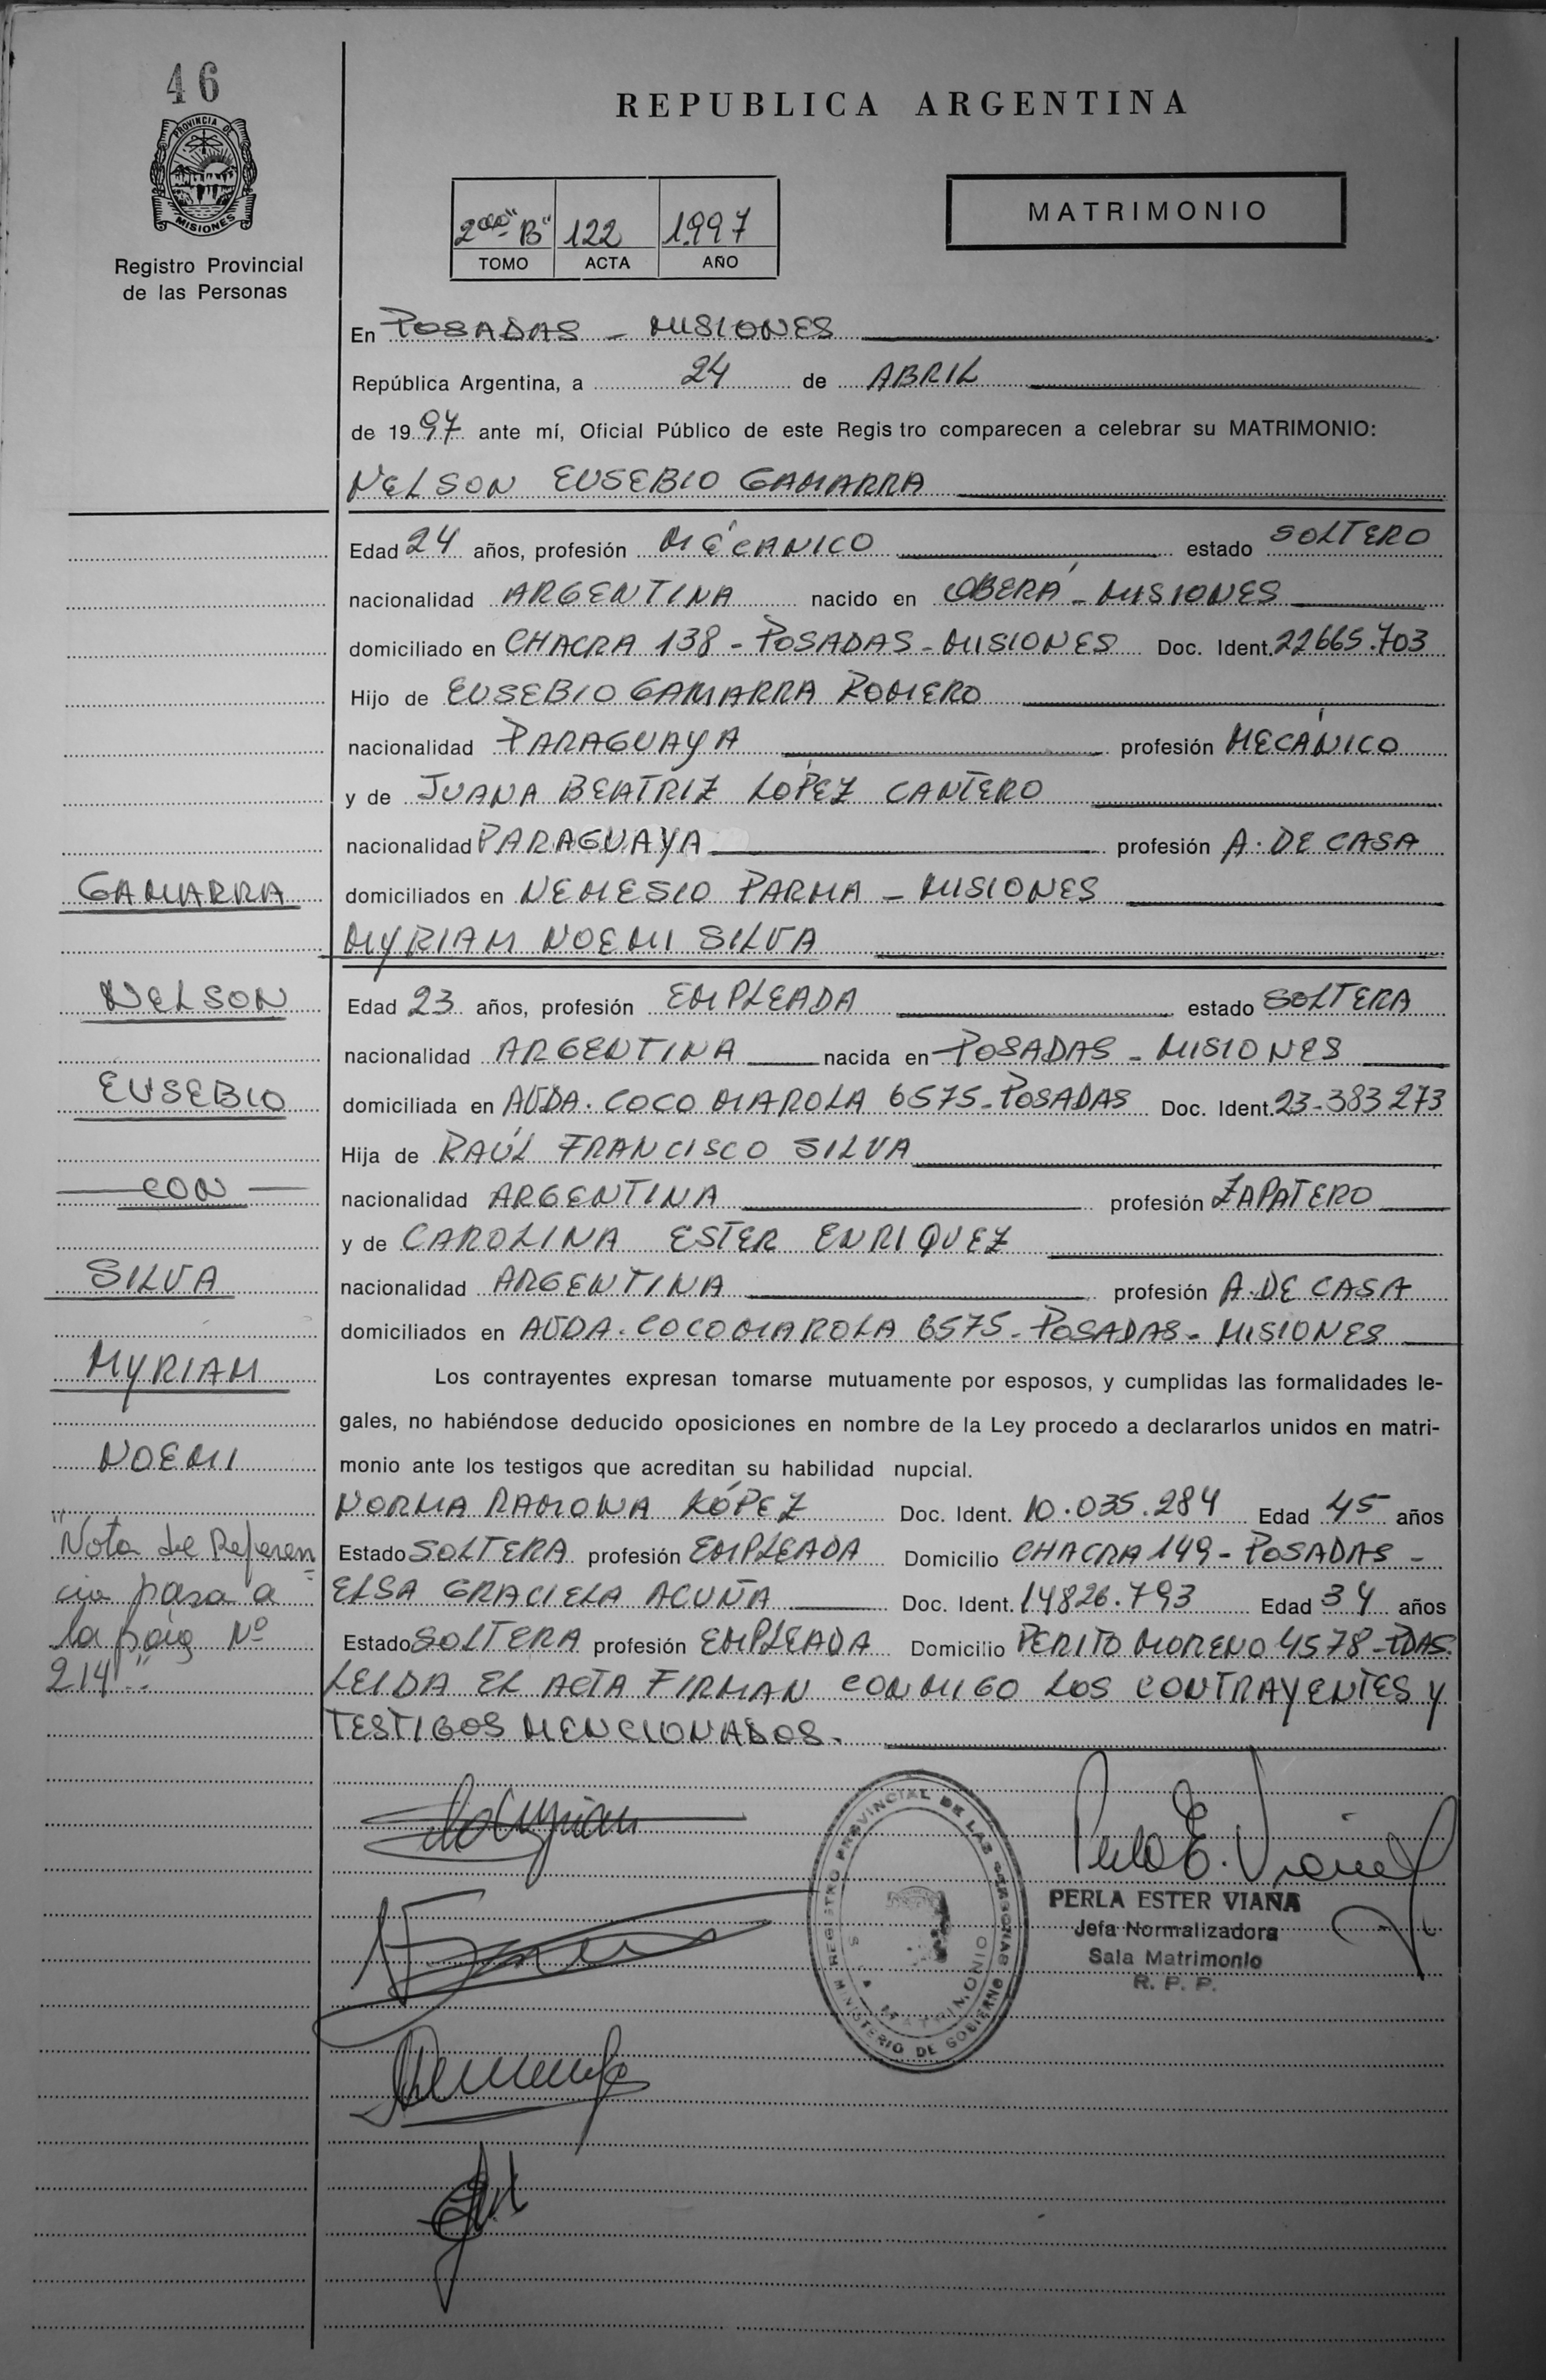 46
PROVINCIA DE
MISIONES
Registro Provincial
de las Personas
REPUBLICA ARGENTINA
2do "B" 122 1997
TOMO ACTA AÑO
MATRIMONIO
En POSADAS - MISIONES
República Argentina, a 24 de ABRIL
de 1997 ante mí, Oficial Público de este Regis tro comparecen a celebrar su MATRIMONIO:
NELSON EUSEBIO GAMARRA
Edad 24 años, profesión MÉCANICO estado SOLTERO
nacionalidad ARGENTINA nacido en OBERÁ - MISIONES
domiciliado en CHACRA 138 - POSADAS - MISIONES Doc. Ident. 22665.703
Hijo de EUSEBIO GAMARRA ROMERO
nacionalidad PARAGUAYA profesión MECÁNICO
y de JUANA BEATRIZ LÓPEZ CANTERO
nacionalidad PARAGUAYA profesión A. DE CASA
domiciliados en NEMESIO PARMA - MISIONES
MYRIAM NOEMI SILVA
Edad 23 años, profesión EMPLEADA estado SOLTERA
nacionalidad ARGENTINA nacida en POSADAS - MISIONES
domiciliada en AVDA. COCO MAROLA 6575 - POSADAS Doc. Ident. 23-383273
Hija de RAÚL FRANCISCO SILVA
nacionalidad ARGENTINA profesión ZAPATERO
y de CAROLINA ESTER ENRIQUEZ
nacionalidad ARGENTINA profesión A. DE CASA
domiciliados en AVDA. COCOMAROLA 6575 - POSADAS - MISIONES
Los contrayentes expresan tomarse mutuamente por esposos, y cumplidas las formalidades le-
gales, no habiéndose deducido oposiciones en nombre de la Ley procedo a declararlos unidos en matri-
monio ante los testigos que acreditan su habilidad nupcial.
NORMA RAMONA LÓPEZ Doc. Ident. 10.035.284 Edad 45 años
Estado SOLTERA profesión EMPLEADA Domicilio CHACRA 149 - POSADAS -
ELSA GRACIELA ACUÑA Doc. Ident. 14826.793 Edad 34 años
Estado SOLTERA profesión EMPLEADA Domicilio PERITO MORENO 4578 - PDAS.
LEIDA EL ACTA FIRMAN CONMIGO LOS CONTRAYENTES Y
TESTIGOS MENCIONADOS.
GAMARRA
NELSON
EUSEBIO
CON
SILVA
MYRIAM
NOEMI
"Nota de Referen
cia pasa a
la pág Nº
214"
REGISTRO PROVINCIAL DE LAS PERSONAS
MATRIMONIO
MINISTERIO DE GOBIERNO
Perla E. Viana
PERLA ESTER VIAÑA
Jefa Normalizadora
Sala Matrimonio
R. P. P.